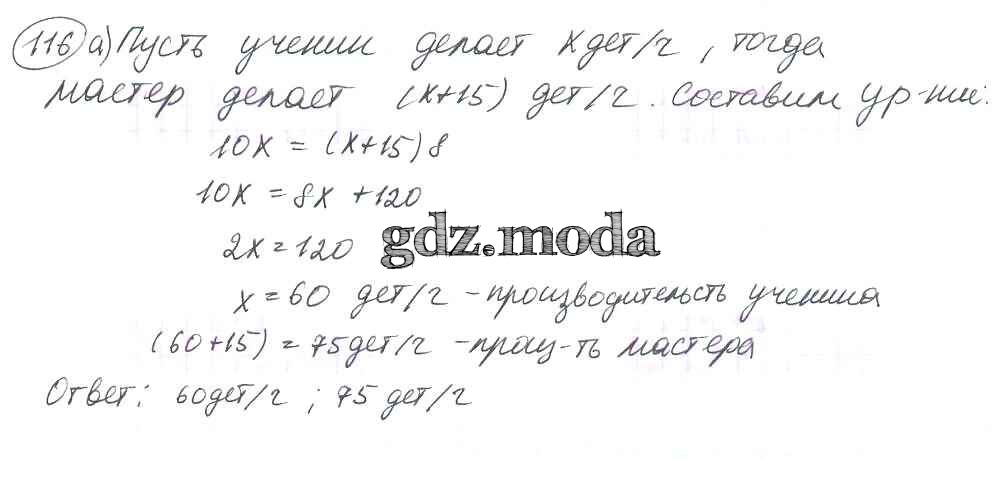 116 а) Пусть ученик делает x дет/ч, тогда
мастер делает (x+15) дет/ч. Составим ур-ние:
10x = (x+15)8
10x = 8x + 120
2x = 120
gdz.moda
x = 60 дет/ч - производительсть ученика
(60+15) = 75 дет/ч - произ-ть мастера
Ответ: 60 дет/ч ; 75 дет/ч